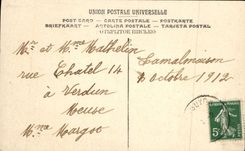 UNION POSTALE UNIVERSELLE
POST CARD — CARTE POSTALE — POSTKARTE
BRIEFKAART — CARTOLINA POSTALE — TARJETA POSTAL
Mr et Mme Mathelin
rue Chatel 14
à Verdun
Meuse
Mme Margot
Lamalmaison
8 octobre 1912
5